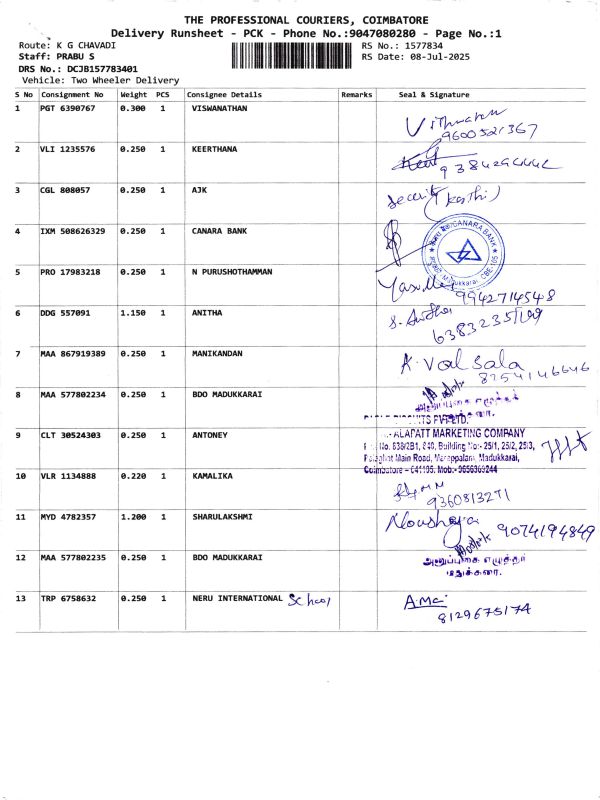 THE PROFESSIONAL COURIERS, COIMBATORE
Delivery Runsheet - PCK - Phone No.:9047080280 - Page No.:1
Route: K G CHAVADI
RS No.: 1577834
Staff: PRABU S
RS Date: 08-Jul-2025
DRS No.: DCJB157783401
Vehicle: Two Wheeler Delivery
S No Consignment No Weight PCS Consignee Details Remarks Seal & Signature
1 PGT 6390767 0.300 1 VISWANATHAN
9600521367
2 VLI 1235576 0.250 1 KEERTHANA
3 CGL 808057 0.250 1 AJK
Security (Kasthi)
4 IXM 508626329 0.250 1 CANARA BANK
CANARA BANK
Madukkarai, CBE-105
5 PRO 17983218 0.250 1 N PURUSHOTHAMMAN
9942714548
6 DDG 557091 1.150 1 ANITHA
S. Anitha
7 MAA 867919389 0.250 1 MANIKANDAN
K. Valsala
8254146646
8 MAA 577802234 0.250 1 BDO MADUKKARAI
அனுப்புகை எழுத்தர்
9 CLT 30524303 0.250 1 ANTONEY
ALAPATT MARKETING COMPANY
No. 638/2B1, 640, Building No:- 25/1, 25/2, 25/3,
Main Road, Marappalam, Madukkarai,
Coimbatore – 641105. Mob:- 9656369244
10 VLR 1134888 0.220 1 KAMALIKA
9360813271
11 MYD 4782357 1.200 1 SHARULAKSHMI
Noushaja 9074194849
12 MAA 577802235 0.250 1 BDO MADUKKARAI
அனுப்புகை எழுத்தர்
மதுக்கரை.
13 TRP 6758632 0.250 1 NERU INTERNATIONAL School
8129675174